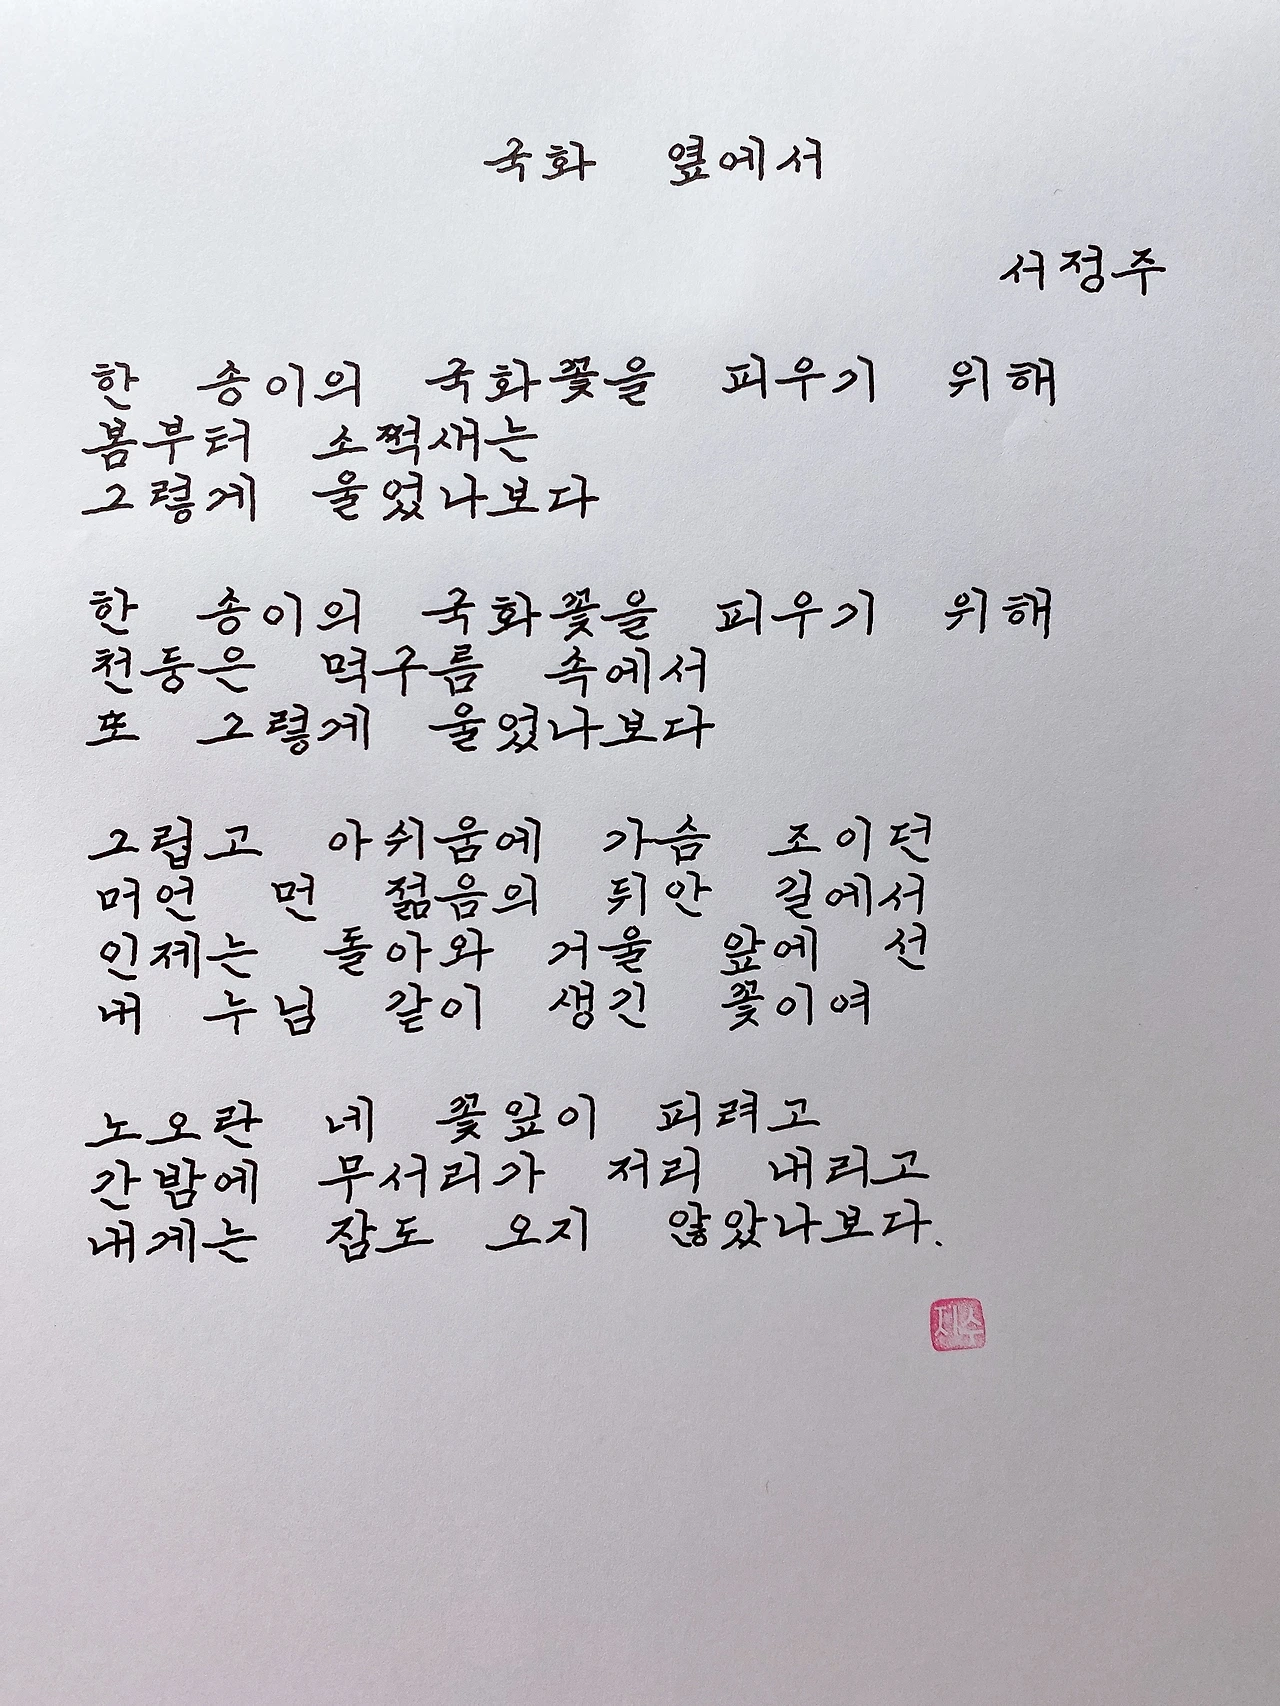 국화 옆에서
서정주
한 송이의 국화꽃을 피우기 위해
봄부터 소쩍새는
그렇게 울었나보다
한 송이의 국화꽃을 피우기 위해
천둥은 먹구름 속에서
또 그렇게 울었나보다
그립고 아쉬움에 가슴 조이던
머언 먼 젊음의 뒤안 길에서
인제는 돌아와 거울 앞에 선
내 누님 같이 생긴 꽃이여
노오란 네 꽃잎이 피려고
간밤에 무서리가 저리 내리고
내게는 잠도 오지 않았나보다.